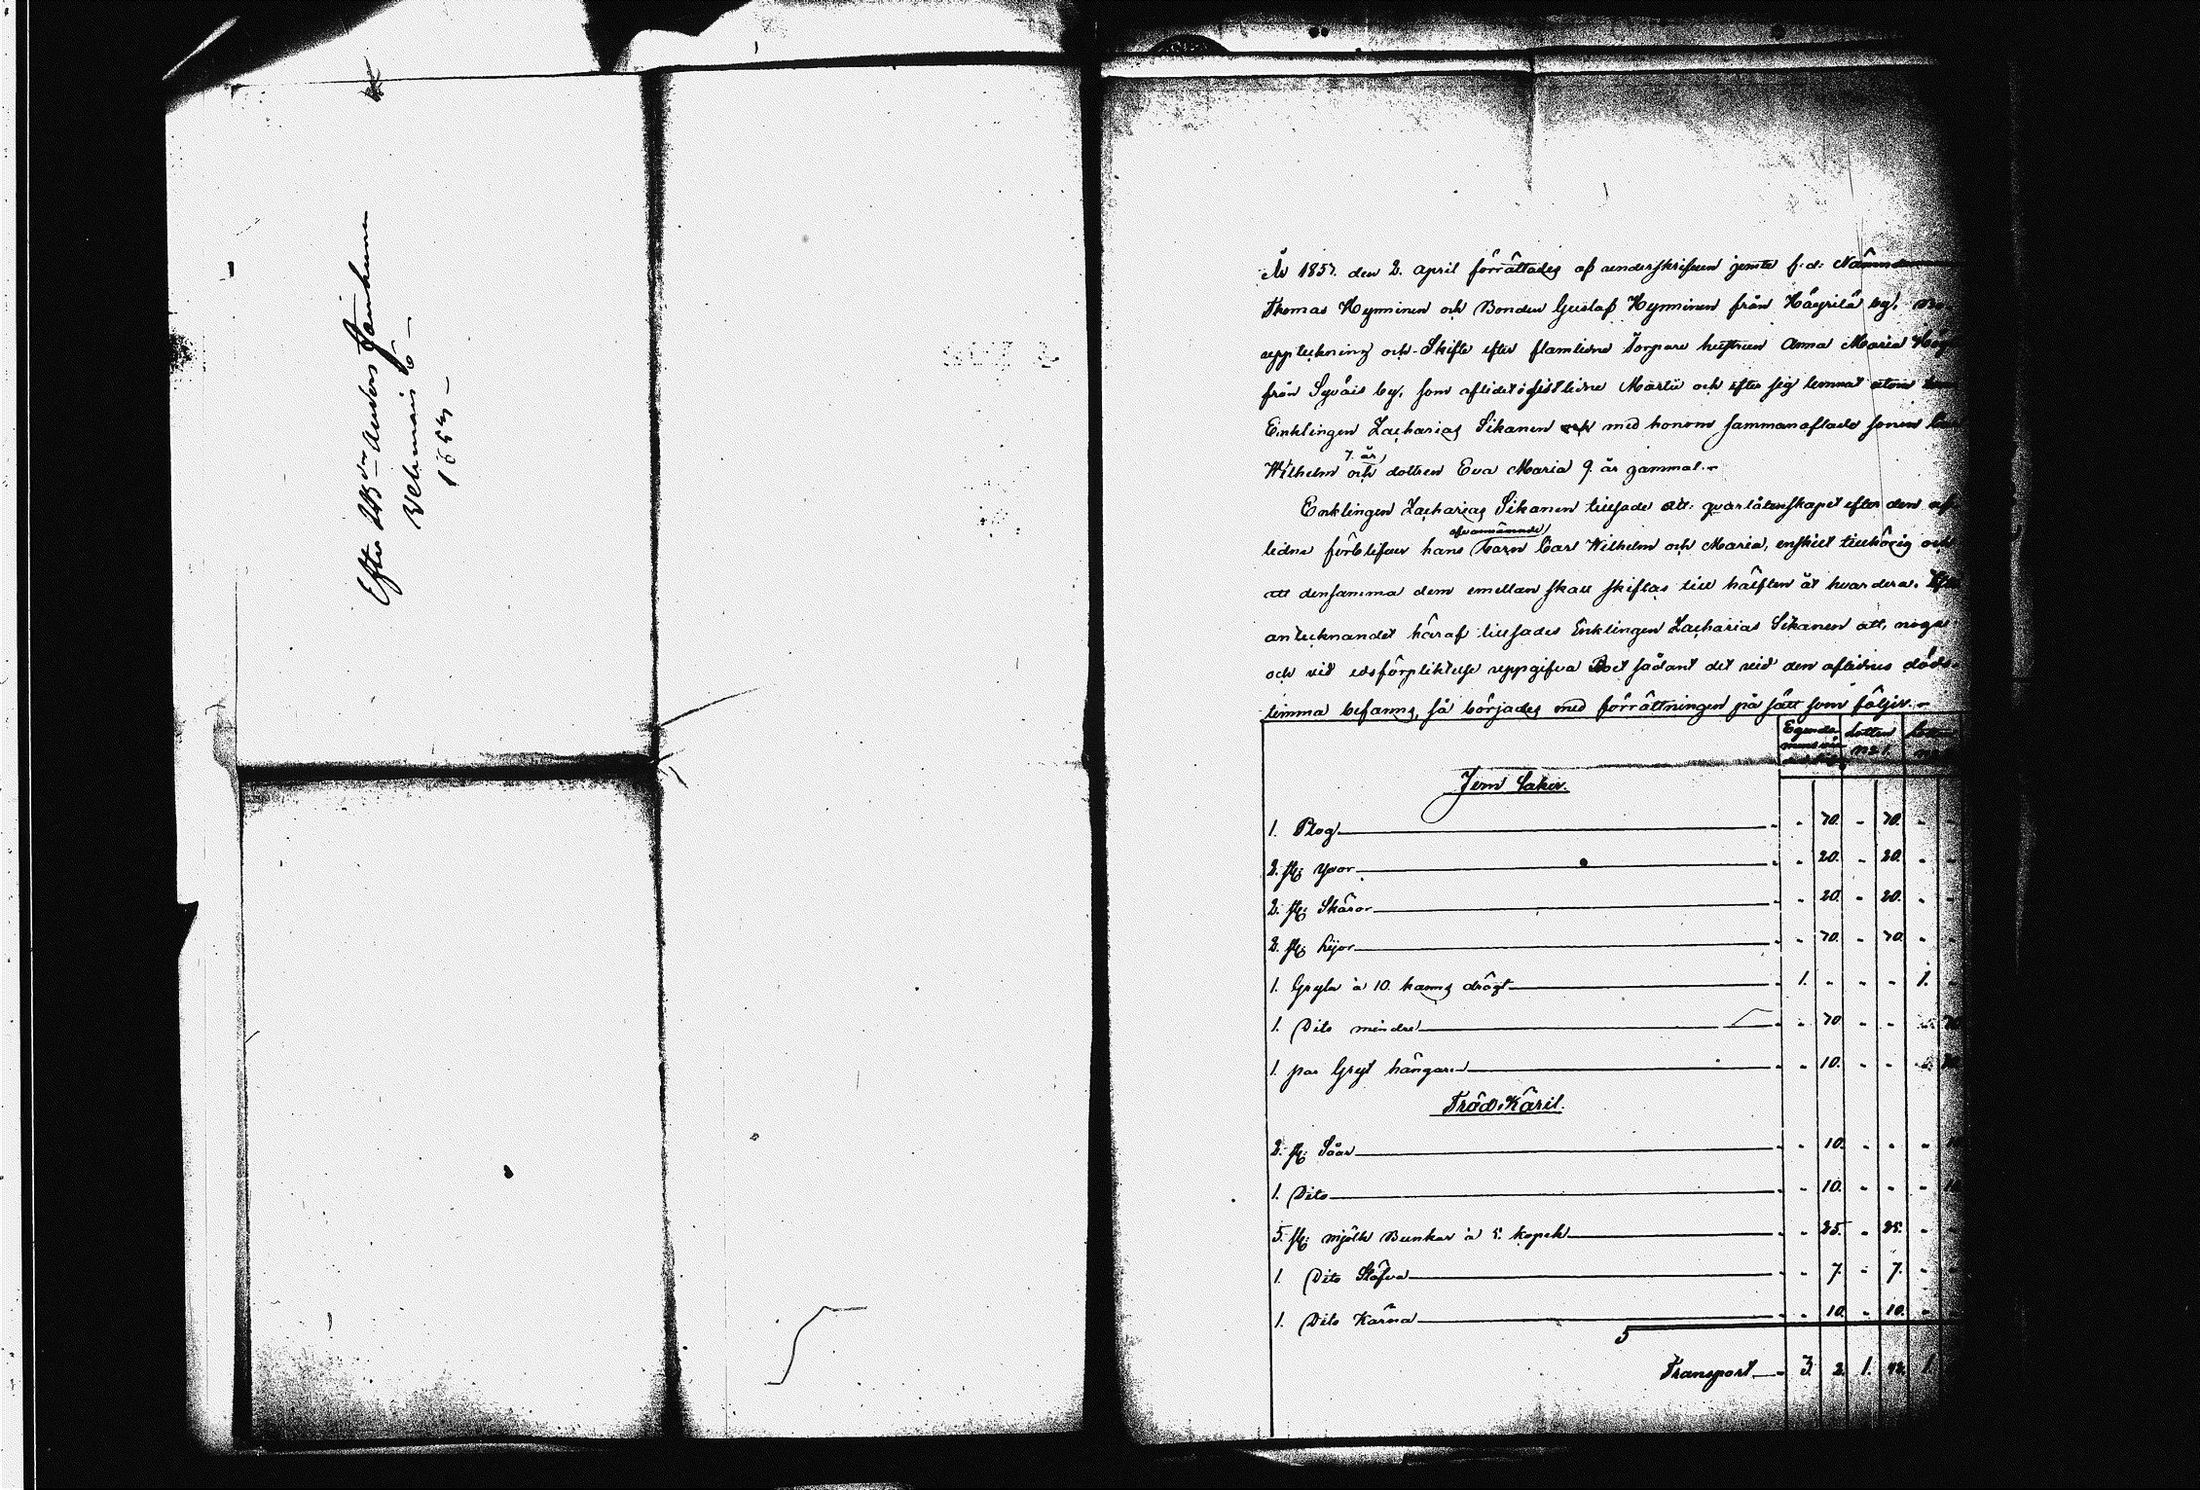 Efter Bdn Anders Jänkinen
Vehmais
1857
År 1857. den 2. April förrättades af underskrifven jemte f: d: Nämnde
Thomas Hynninen och Bonden Gustaf Hynninen från Häyrilä by, Bo
uppteckning och Skifte efter framledne Torpare hustrun Anna Maria
från by, som aflidet i sistledne Martii och efter sig lemnat utom
Enklingen Zacharias Sikanen med honom sammanaflade sonen
Wilhelm 7. år, och dottren Eva Maria 9. år gammal.-
Enklingen Zacharias Sikanen tillsade att: qvarlåtenskapet efter den af-
lidna förblifver hans ofvannämnde barn Carl Wilhelm och Maria, enskilt tillhörig och
att densamma dem emellan skall skiftas till hälften åt hvardera.
antecknandet häraf tillsades Enklingen Zacharias Sikanen att, noga
och vid edsförpliktelse uppgifva Boet sådant det vid den aflidnes döds-
timma befanns, så börjades med förrättningen på sätt som följer.-
Egendo- Lotten
mens vär- No 1.
Jern Saker.
1. Plog - - 70. - 70. - -
2. st: yxor - - 20. - 20. - -
2. st: Skäror - - 20. - 20. - -
2. st: Lijor - - 70. - 70. - -
1. Gryta à 10. kanns drägt - 1. - - - 1. -
1. Dito mindre - - 70 - - -
1. par Gryt hängare - - 10. - - -
Träd-Käril.
2. st: Såar - - 10. - - - 10
1. Dito - - 10. - - - 10
5. st: mjölk Bunkar à 5. kopek - - 25. - 25. - -
1. Dito Stäfva - - 7. - 7. - -
1. Dito Kärna - - 10. - 10. -
Transport - 3. 2. 1. 1.